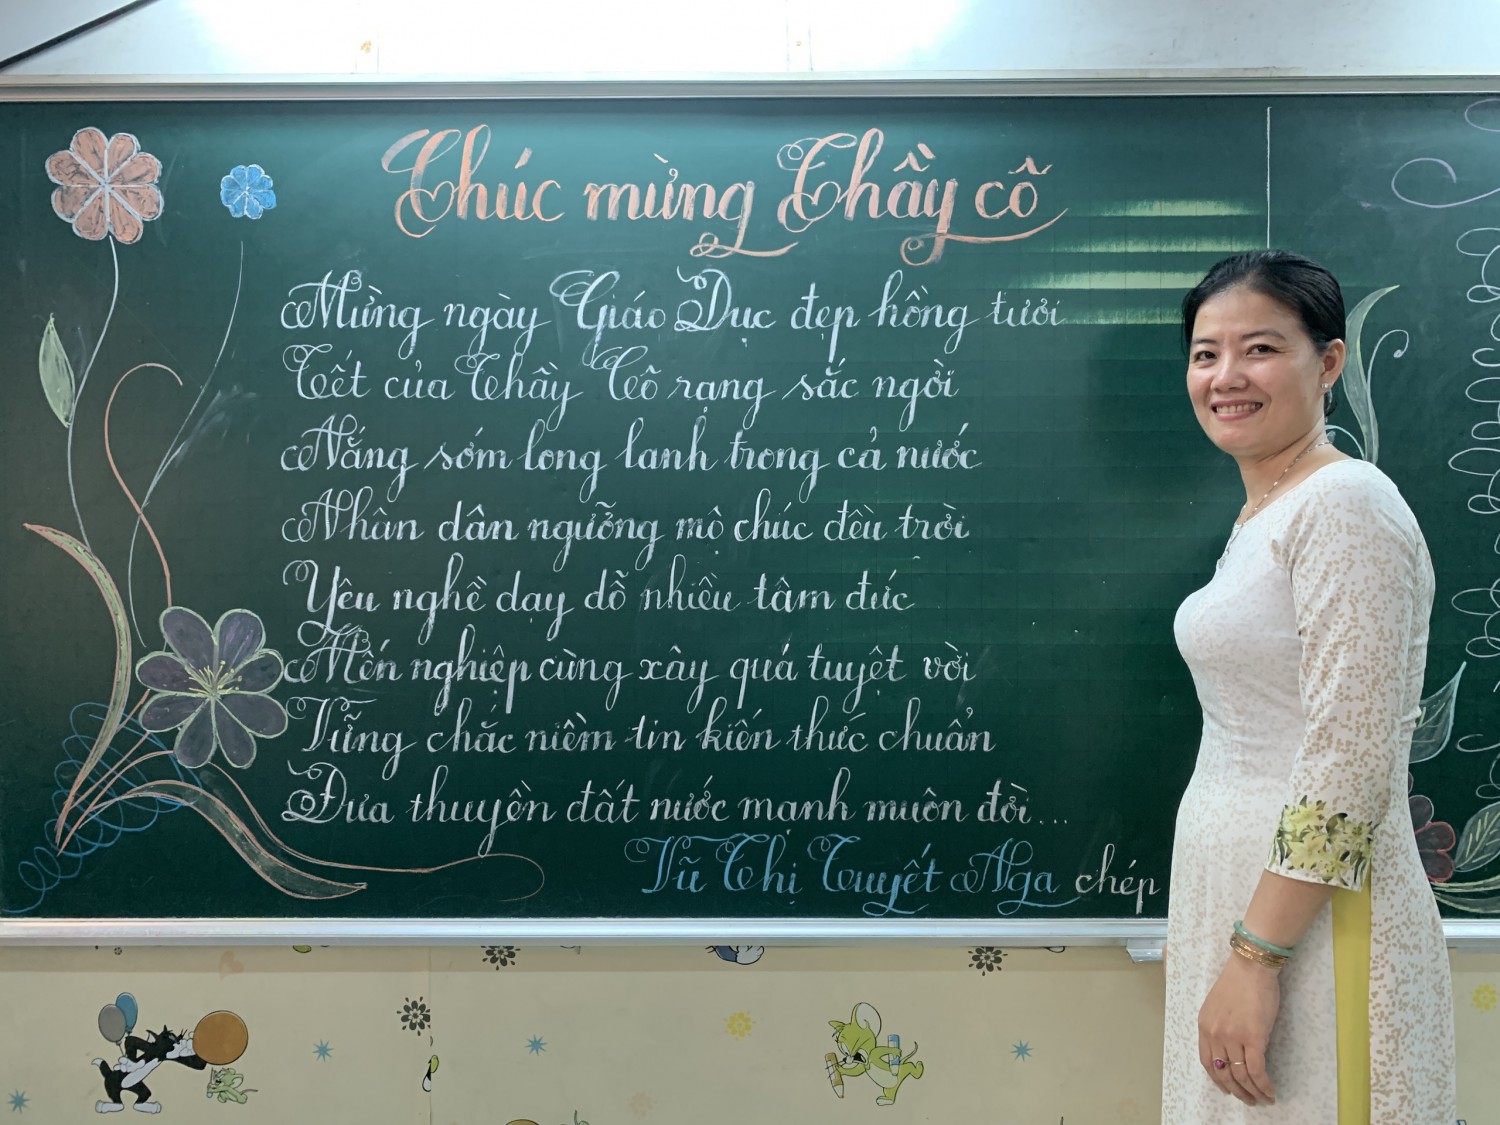 Chúc mừng Thầy cô
Mừng ngày Giáo Dục đẹp hồng tươi
Tết của Thầy Cô rạng sắc ngời
Nắng sớm long lanh trong cả nước
Nhân dân ngưỡng mộ chúc đều trời
Yêu nghề dạy dỗ nhiều tâm đức
Mến nghiệp cùng xây quá tuyệt vời
Vững chắc niềm tin kiến thức chuẩn
Đưa thuyền đất nước mạnh muôn đời...
Vũ Thị Tuyết Nga chép